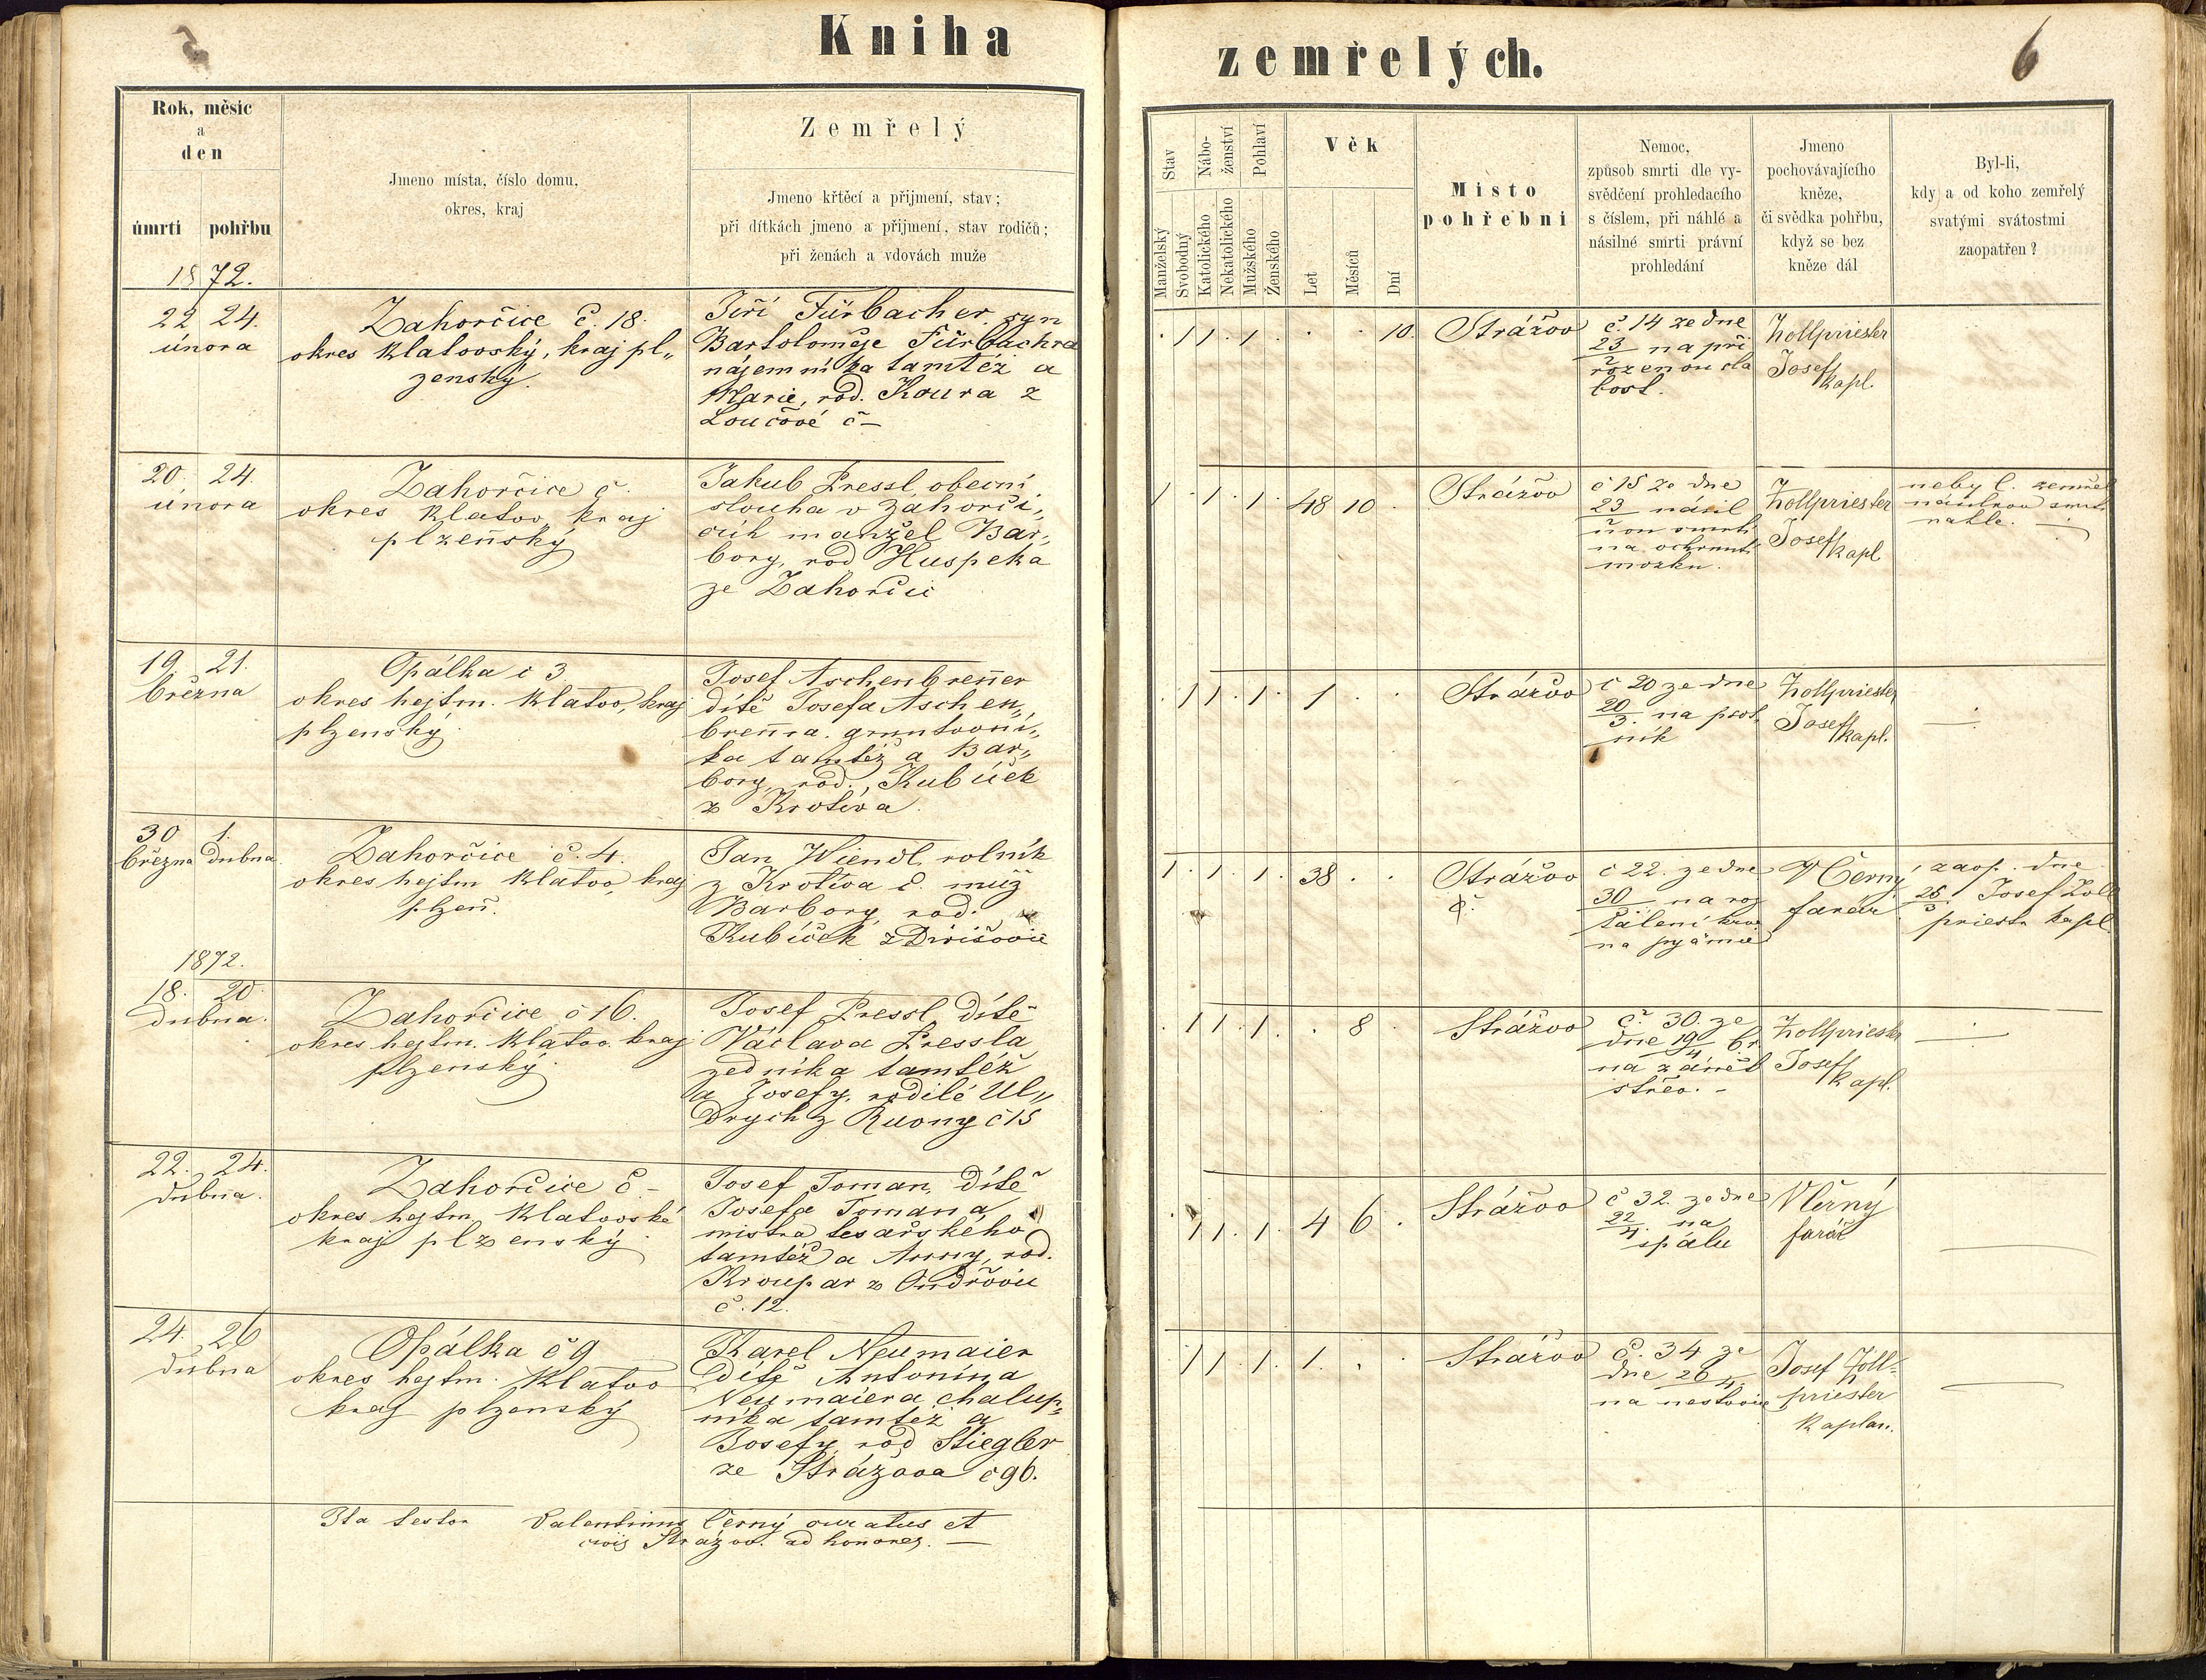 Kniha zemřelých.
6
Rok, měsíc
a
den
úmrtí pohřbu
Jmeno místa, číslo domu,
okres, kraj
Zemřelý
Jmeno křtěcí a přijmení, stav;
při dítkách jmeno a přijmení, stav rodičů;
při ženách a vdovách muže
Stav
Manželský
Svobodný
Nábo-
ženství
Katolického
Nekatolického
Pohlaví
Mužského
Ženského
Věk
Let
Měsíců
Dní
Místo
pohřební
Nemoc,
způsob smrti dle vy-
svědčení prohledacího
s číslem, při náhlé a
násilné smrti právní
prohledání
Jmeno
pochovávajícího
kněze,
či svědka pohřbu,
když se bez
kněze dál
Byl-li,
kdy a od koho zemřelý
svatými svátostmi
zaopatřen?
1872.
22 24.
února
Zahorčice č. 18.
okres Klatovský, kraj pl„
zenský.
Jiří Fürbacher, syn
Bartoloměje Fürbachra
nájemníka tamtéž a
Marie, rod. Koura z
Loučové č –
. 1 1 . 1 . . . 10.
Strážov
č. 14 ze dne
23/2 na při
rozenou sla
bost.
Zollpriester
Josef
kapl.
20. 24.
února
Zahorčice č.
okres Klatov, kraj
plzeňský
Jakub Pressl, obecní
slouha v Zahorči„
cích manžel Bar„
bory, rod Huspeka
ze Zahorčic
1 . 1 . 1 . 48 10 .
Strážov
č 15 ze dne
23 násil
nou smrti
na ochrnutí
mozku.
Zollpriester
Josef
kapl
neby l. zemřel
náhle.
19. 21.
března
Opálka č 3.
okres hejtm. Klatov, kraj
plzenský.
Josef Aschenbrener
dítě Josefa Aschen„
brenra. gruntovní„
ka tamtéž a Bar„
bory, rod., Kubíček
z Krotiva.
. 1 1 . 1 . 1 . .
Strážov
č 20 ze dne
20/3. na psot
ník
Zollpriester
Josef
kapl.
30 1.
března dubna.
Zahorčice č. 4.
okres hejtm Klatov, kraj
plzeň.
Jan Wiendl, rolník
z Krotiva č. muž
Barbory, rod.
Kubíček z Divišovic
1 . 1 . 1 . 38 . .
Strážov
č 22. ze dne
30 na roz
V Černý
farář
zaop. dne
26/3 Josef Zoll
priestr kapl.
1872.
18. 20.
dubna.
Zahorčice č 16.
okres hejtm. Klatov. kraj
plzenský.
Josef Pressl, dítě
Václava Pressla
zedníka tamtéž
a Josefy, rodilé Ul„
drych z Ruony č 15
. 1 1 . 1 . . 8 .
Strážov
č. 30. ze
dne 19/4 br.
na zánět
střev. –
Zollpriestr
Josef
kapl.
22. 24.
dubna.
Zahorčice č –
okres hejtm Klatovské
kraj plzenský.
Josef Toman, dítě
Josefa Tomana,
mistra tesařského
tamtéž a Anny, rod.
Kroupar z Ondřovic
č. 12.
. 1 1 . 1 . 4 6 .
Strážov
č 32. ze dne
22/4. na
spálu
V Černý
farář
24. 26
dubna
Opálka č 9
okres hejtm. Klatov
kraj plzenský
Karel Neumaier
dítě Antonína
Neumaiera chalup„
níka tamtéž a
Josefy, rod Stiegler
ze Strážova č 96.
. 1 1 . 1 . 1. . .
Strážov
č. 34 ze
dne 26/4.
na nestovice
Josef Zoll-
priester
kaplan.
Ita testor Valentinus Černý curatus et
civis Strážov. ad honores. –